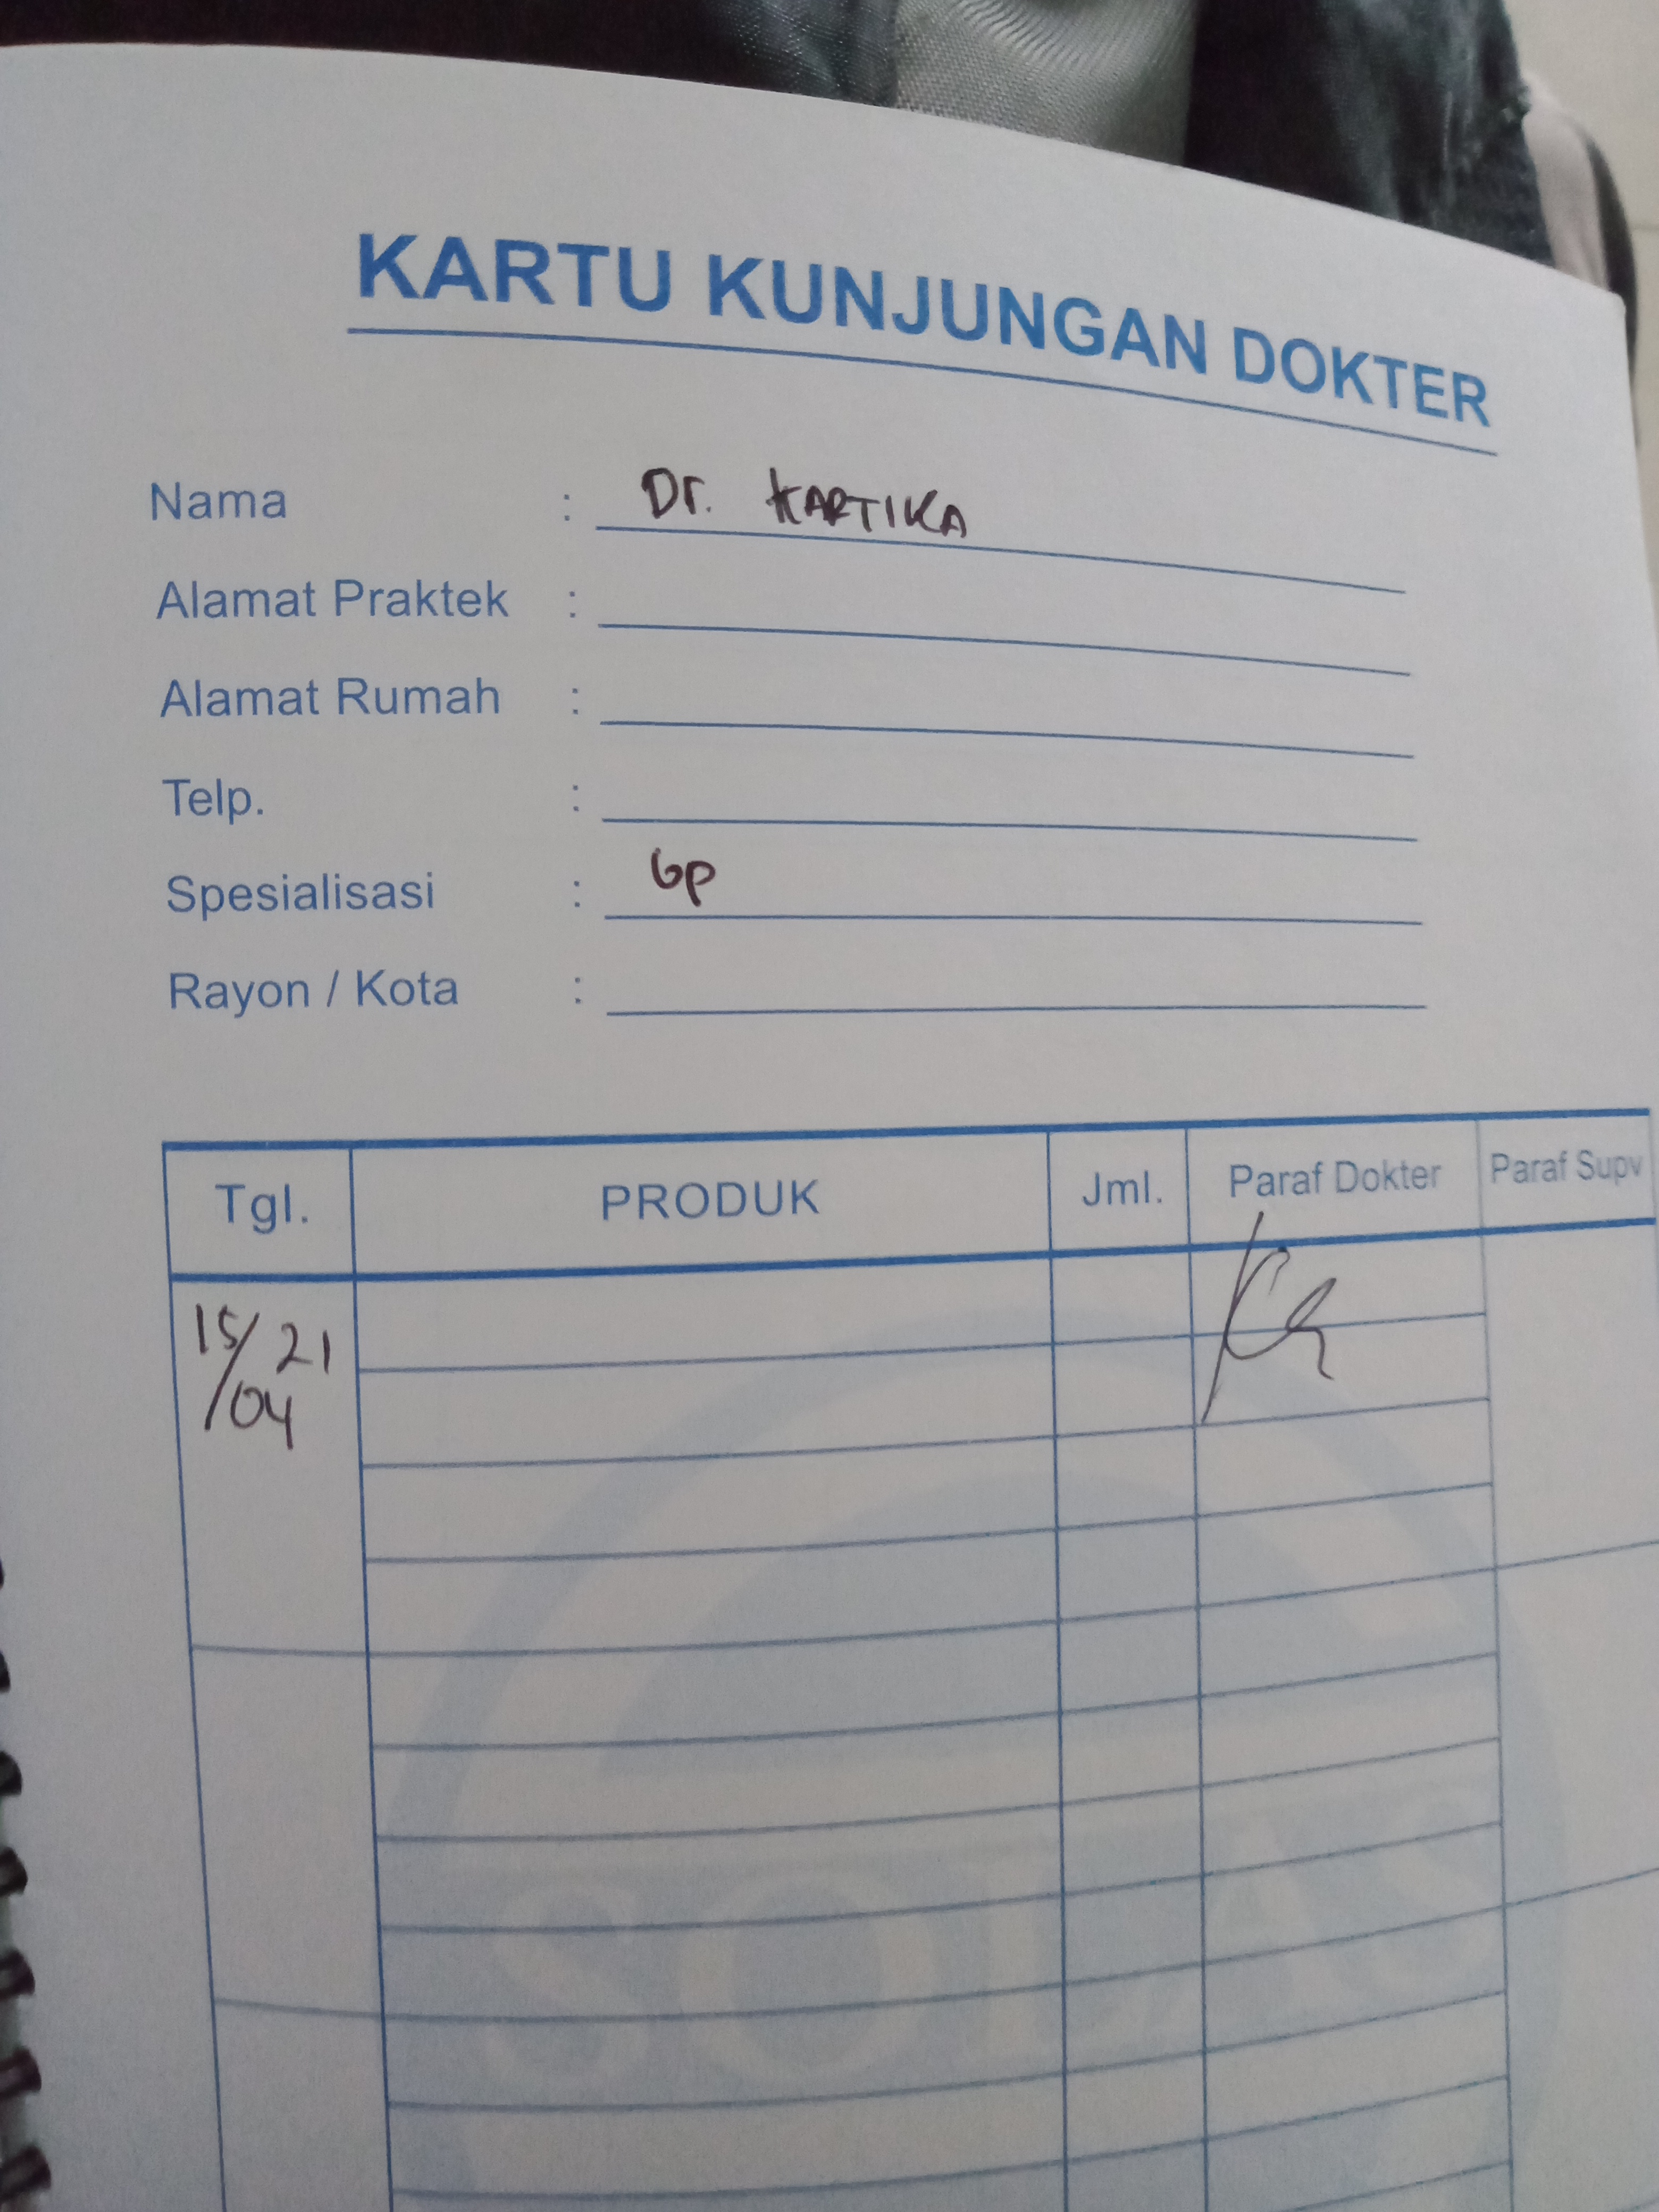 KARTU KUNJUNGAN DOKTER
Nama : Dr. KARTIKA
Alamat Praktek :
Alamat Rumah :
Telp. :
Spesialisasi : GP
Rayon / Kota :
Tgl. PRODUK Jml. Paraf Dokter Paraf Supv
15/04 21
SOLAS